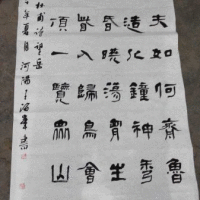 夫如何齊魯
造化鐘神秀
昏曉蕩胷生
眥入歸鳥會
頂一覽眾山
杜甫詩望岳
年夏月河